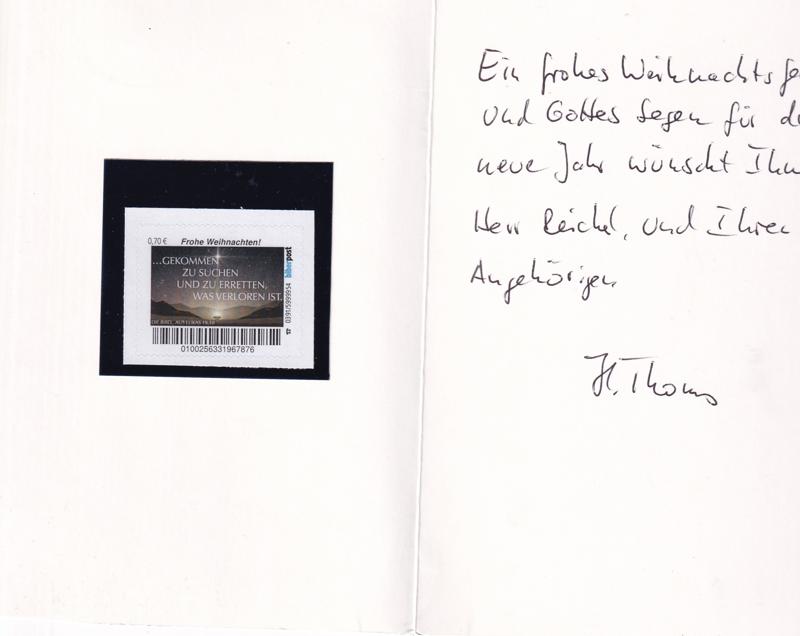 0,70 € Frohe Weihnachten!
...GEKOMMEN
ZU SUCHEN
UND ZU ERRETTEN,
WAS VERLOREN IST.
DIE BIBEL, AUS LUKAS 19,10
biberpost
17 0391/5999954
0100256331967876
Ein frohes Weihnachtsfe
und Gottes Segen für d
neue Jahr wünscht Ihn
Herr Reichel, und Ihren
Angehörigen
H. Thoms